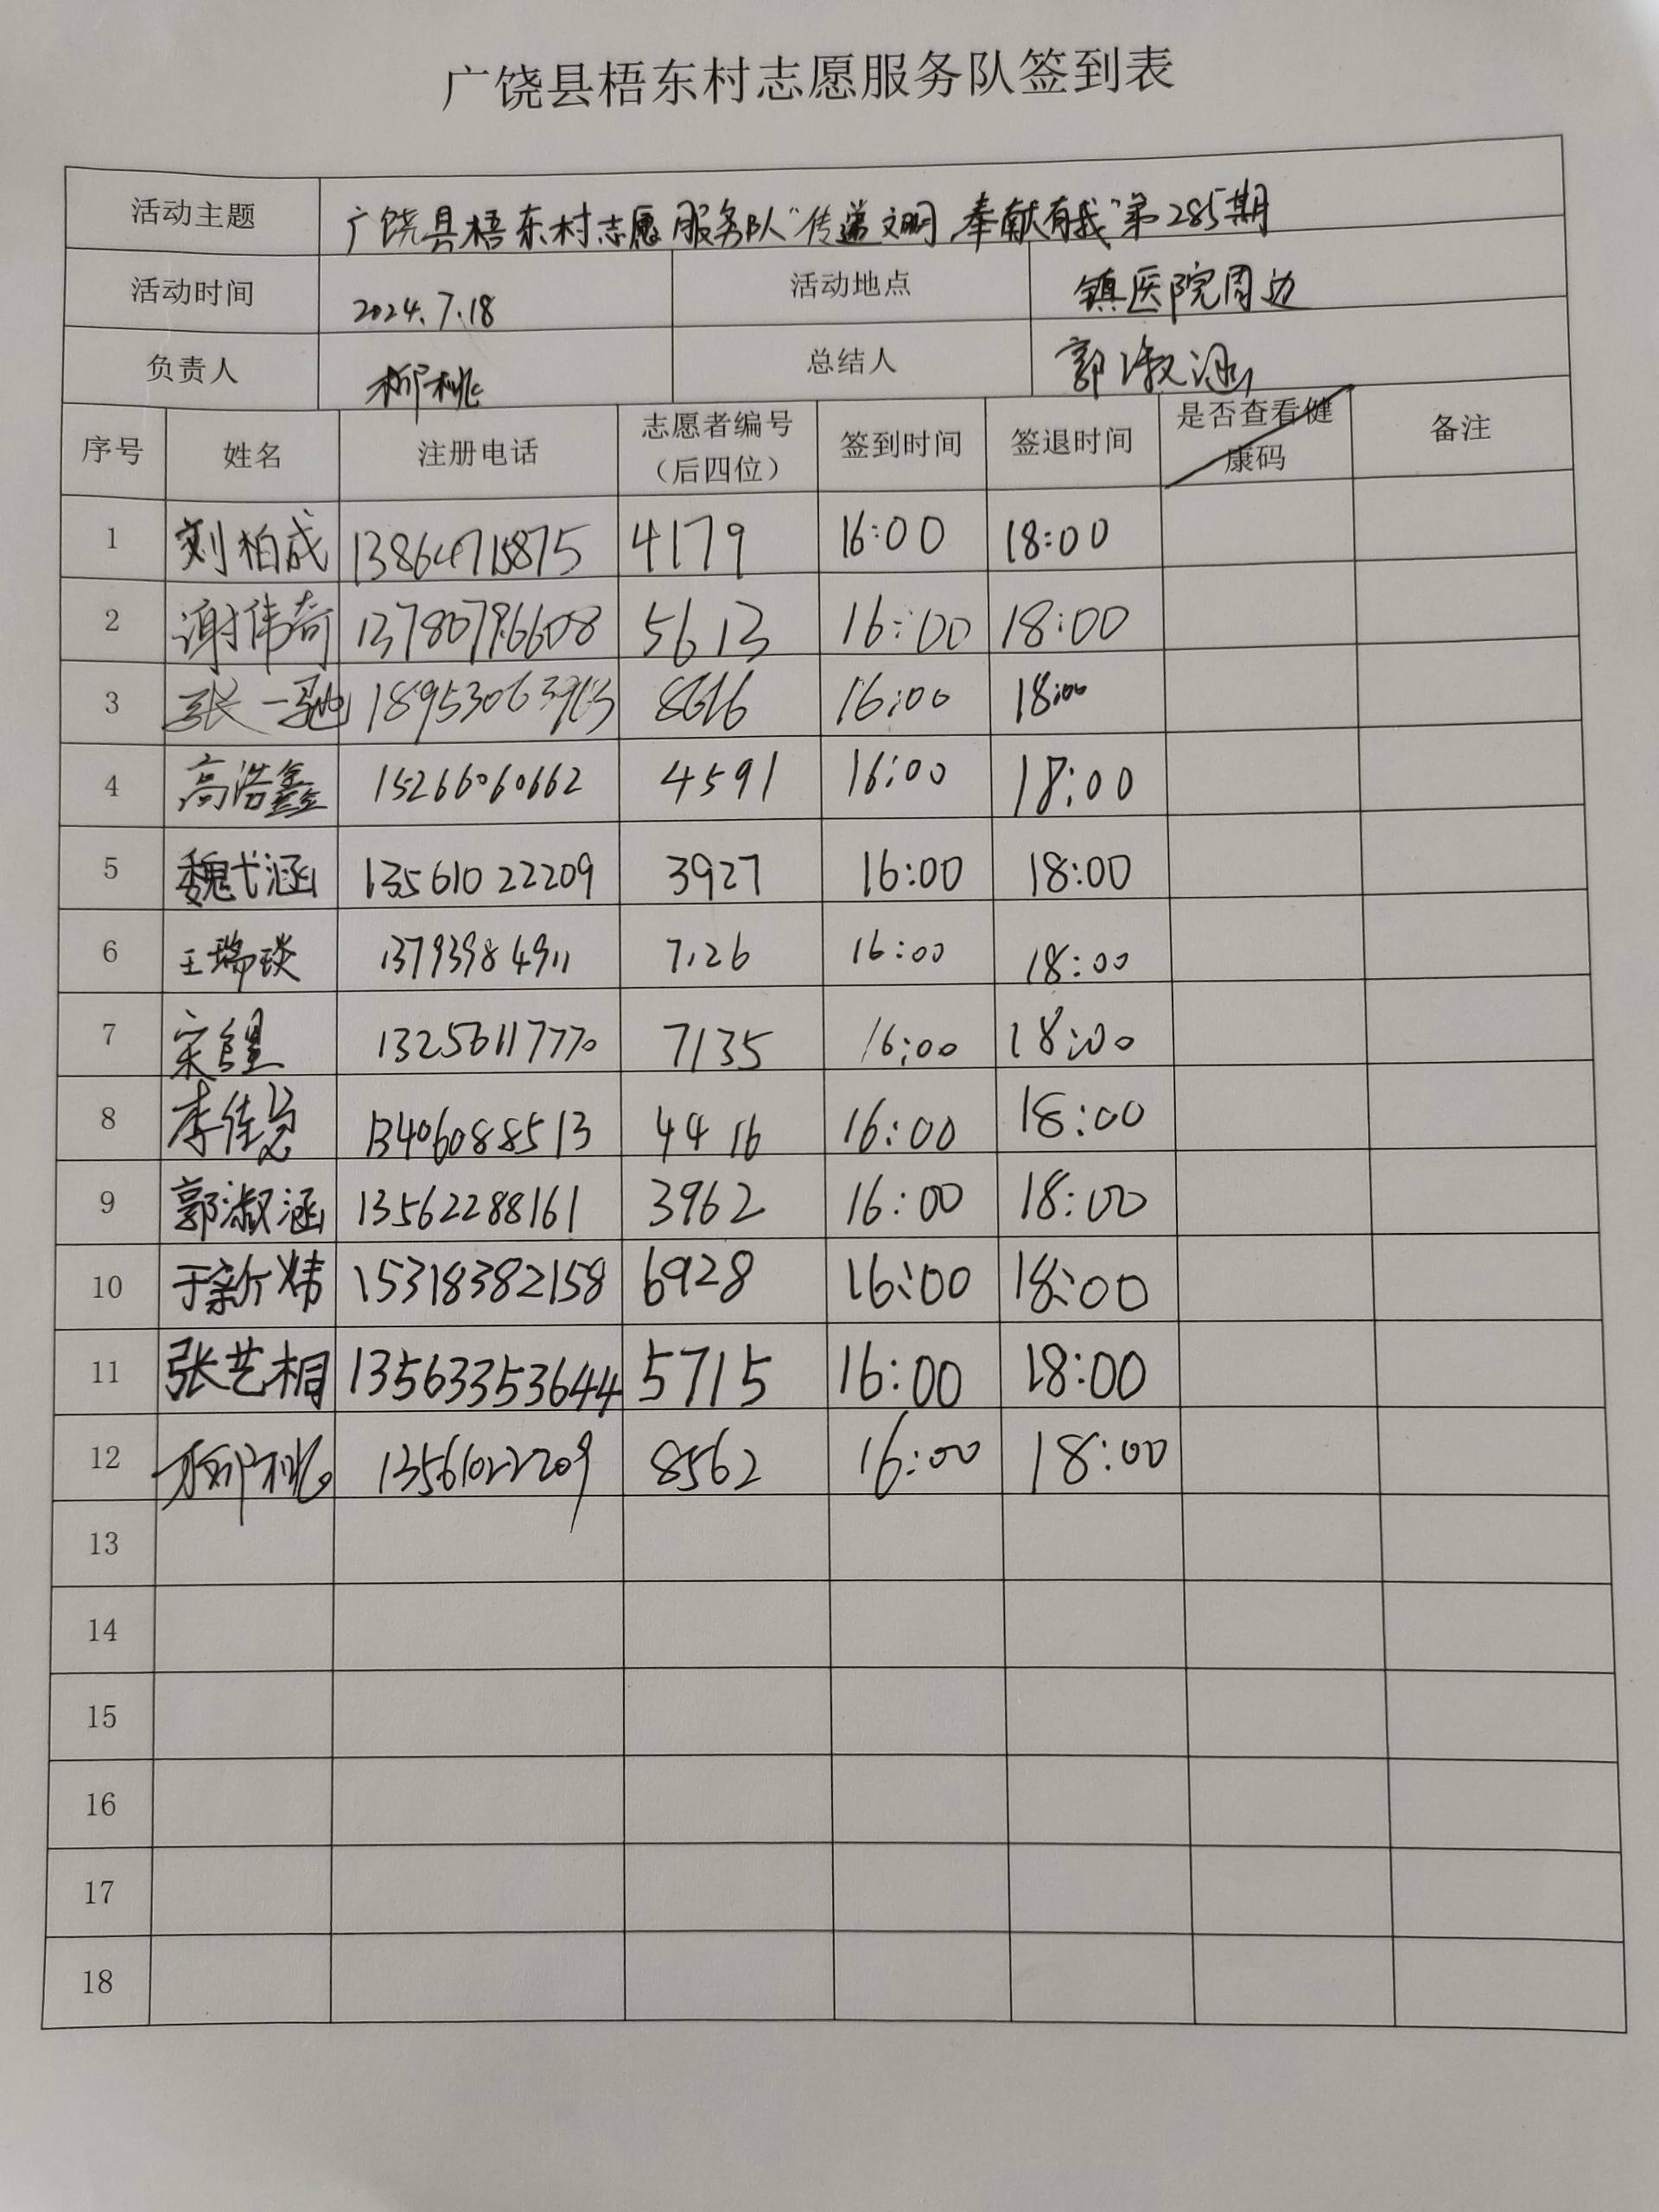 广饶县梧东村志愿服务队签到表
活动主题 广饶县梧东村志愿服务队“传递文明 奉献有我”第285期
活动时间 2024.7.18 活动地点 镇医院周边
负责人 柳桃 总结人 郭淑涵
序号 姓名 注册电话 志愿者编号（后四位） 签到时间 签退时间 是否查看健康码 备注
1 刘柏成 13864715875 4179 16:00 18:00
2 谢伟奇 13780796608 5613 16:00 18:00
3 张一驰 16:00 18:00
4 高浩鑫 15266060662 4591 16:00 18:00
5 魏弋涵 13561022209 3927 16:00 18:00
6 王瑞琰 13793984911 7126 16:00 18:00
7 宋 13256117770 7135 16:00 18:00
8 李佳 13406088513 4416 16:00 18:00
9 郭淑涵 13562288161 3962 16:00 18:00
10 于新炜 15318382158 6928 16:00 18:00
11 张艺桐 13563353644 5715 16:00 18:00
12 柳桃 13561022209 8562 16:00 18:00
13
14
15
16
17
18